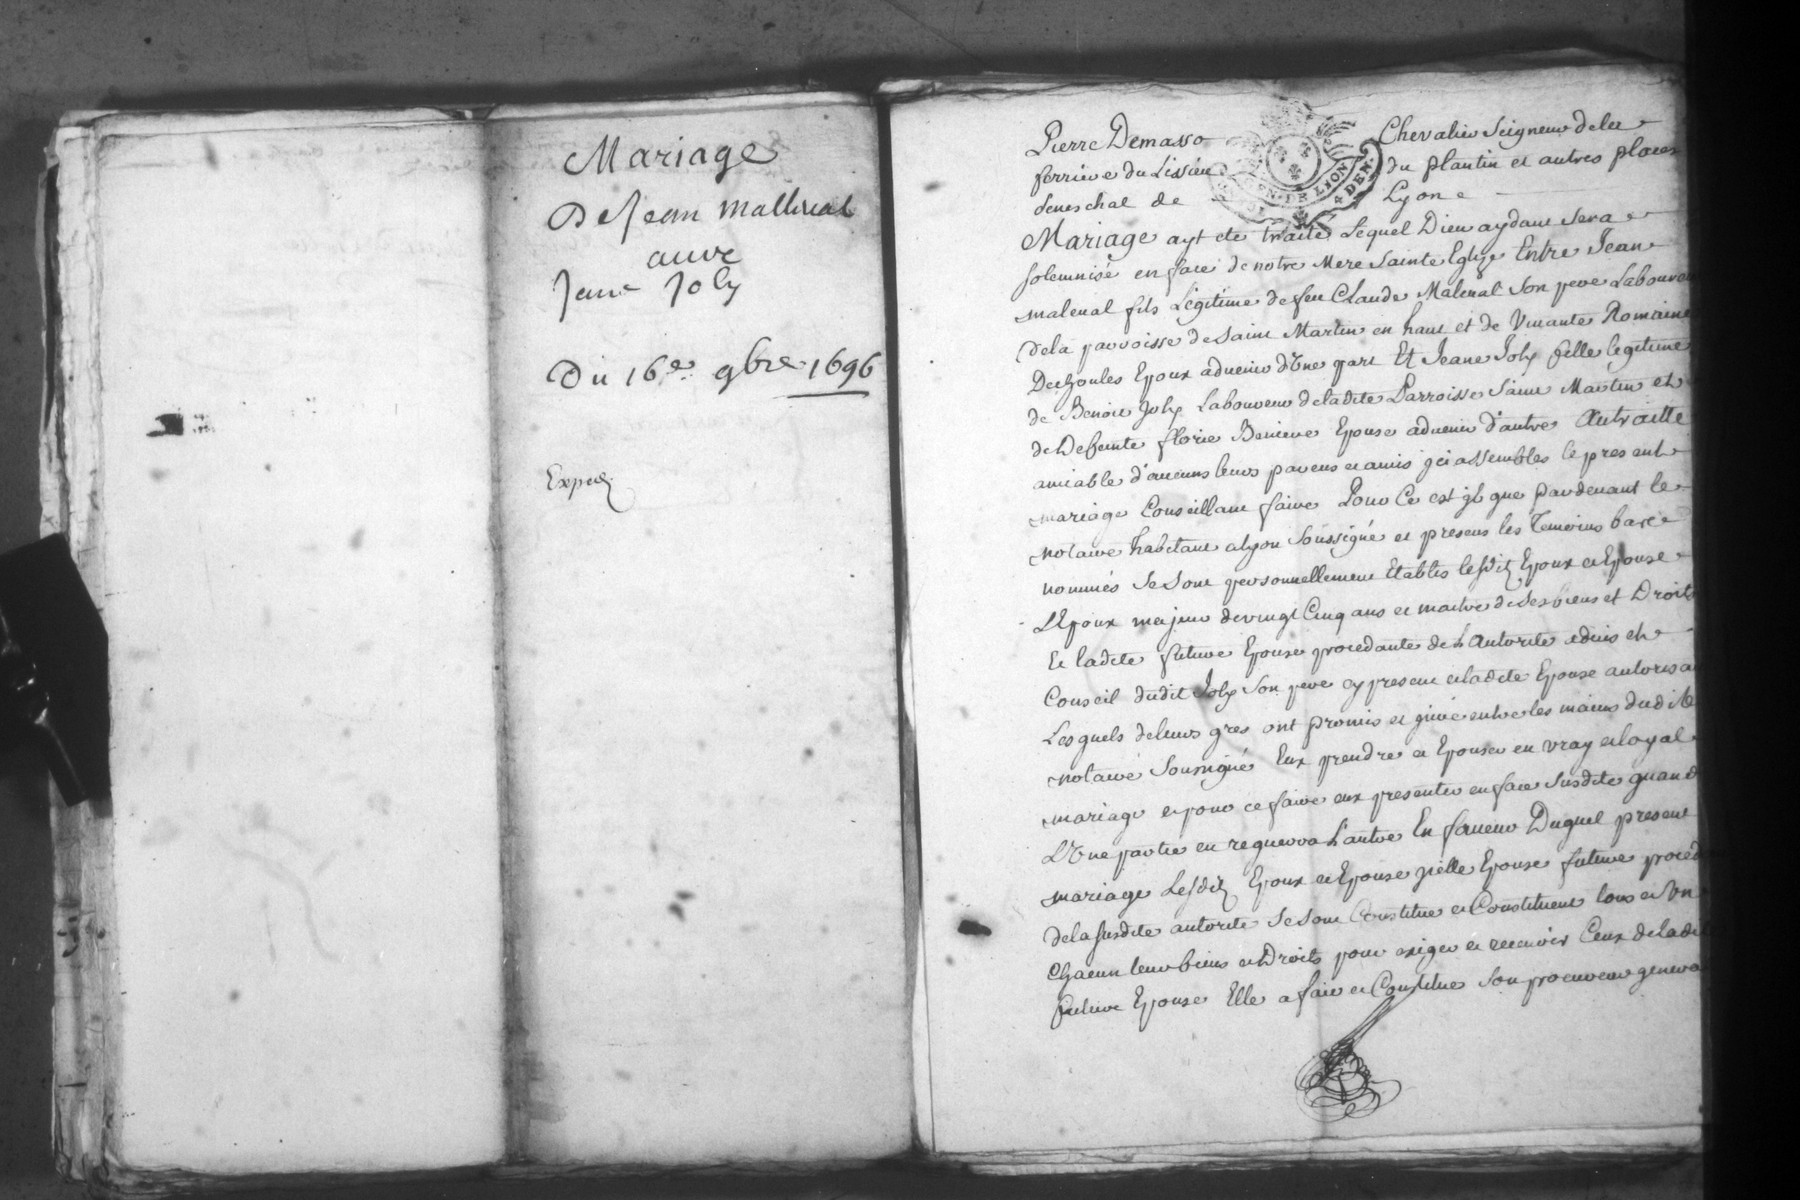 Mariage
De Jean mallical
avec
Jeane Joly
Du 16e 9bre 1696
Exped
Pierre Demasso Chevalier Seigneur delee
ferriere du Lissieu du plantin et autres places
Seneschal de Lyon
GEN. DE LYON
DEN.
Mariage ayt ete traite Lequel Dieu aydant Sera
solemnisé en face de notre Mere Sainte Eglize Entre Jean
malenal fils Légitime de feu Claude Malenal Son pere Laboureur
dela parroisse de Saint Martin en haut et de Vivante Romaine
Epoux advenir d'Une part Et Jeane Joly fille legitime
de Benoit Joly Laboureur de ladite Parroisse Saint Martin et
de Defunte florie Epouse advenir d'autre Autraitte
amiable d'aucuns leurs parens et amis jci assembles le present
mariage Conseillant faire Pour Ce est jl que pardevant le
notaire habitant alyon Soussigné et presens les Temoins bas
nommés Se Sont personnellement Etablis lesdits Epoux et Epouse
L'Epoux majeur de vingt Cinq ans et maitre de Ses biens et Droits
Et ladite future Epouse procedante de L'Autorite advis et
Conseil dudit Joly Son pere cy present et ladite Epouse autorisa
Lesquels de leurs gres ont promis et juré entre les mains dudit
notaire Soussigné Eux prendre et Epouser en vray et loyal
mariage et pour ce faire eux presenter en face Susdite quand
L'Une partie en requerra L'autre En faveur Duquel present
mariage Lesdits Epoux et Epouse jcelle Epouse future proced
de la susdite autorite Se Sont Constitue et Constituent tous et Un
Chacun leur biens et Droits pour exiger et recevoir Ceux de ladit
future Epouse Elle a fait et Constitue Son procureur genera